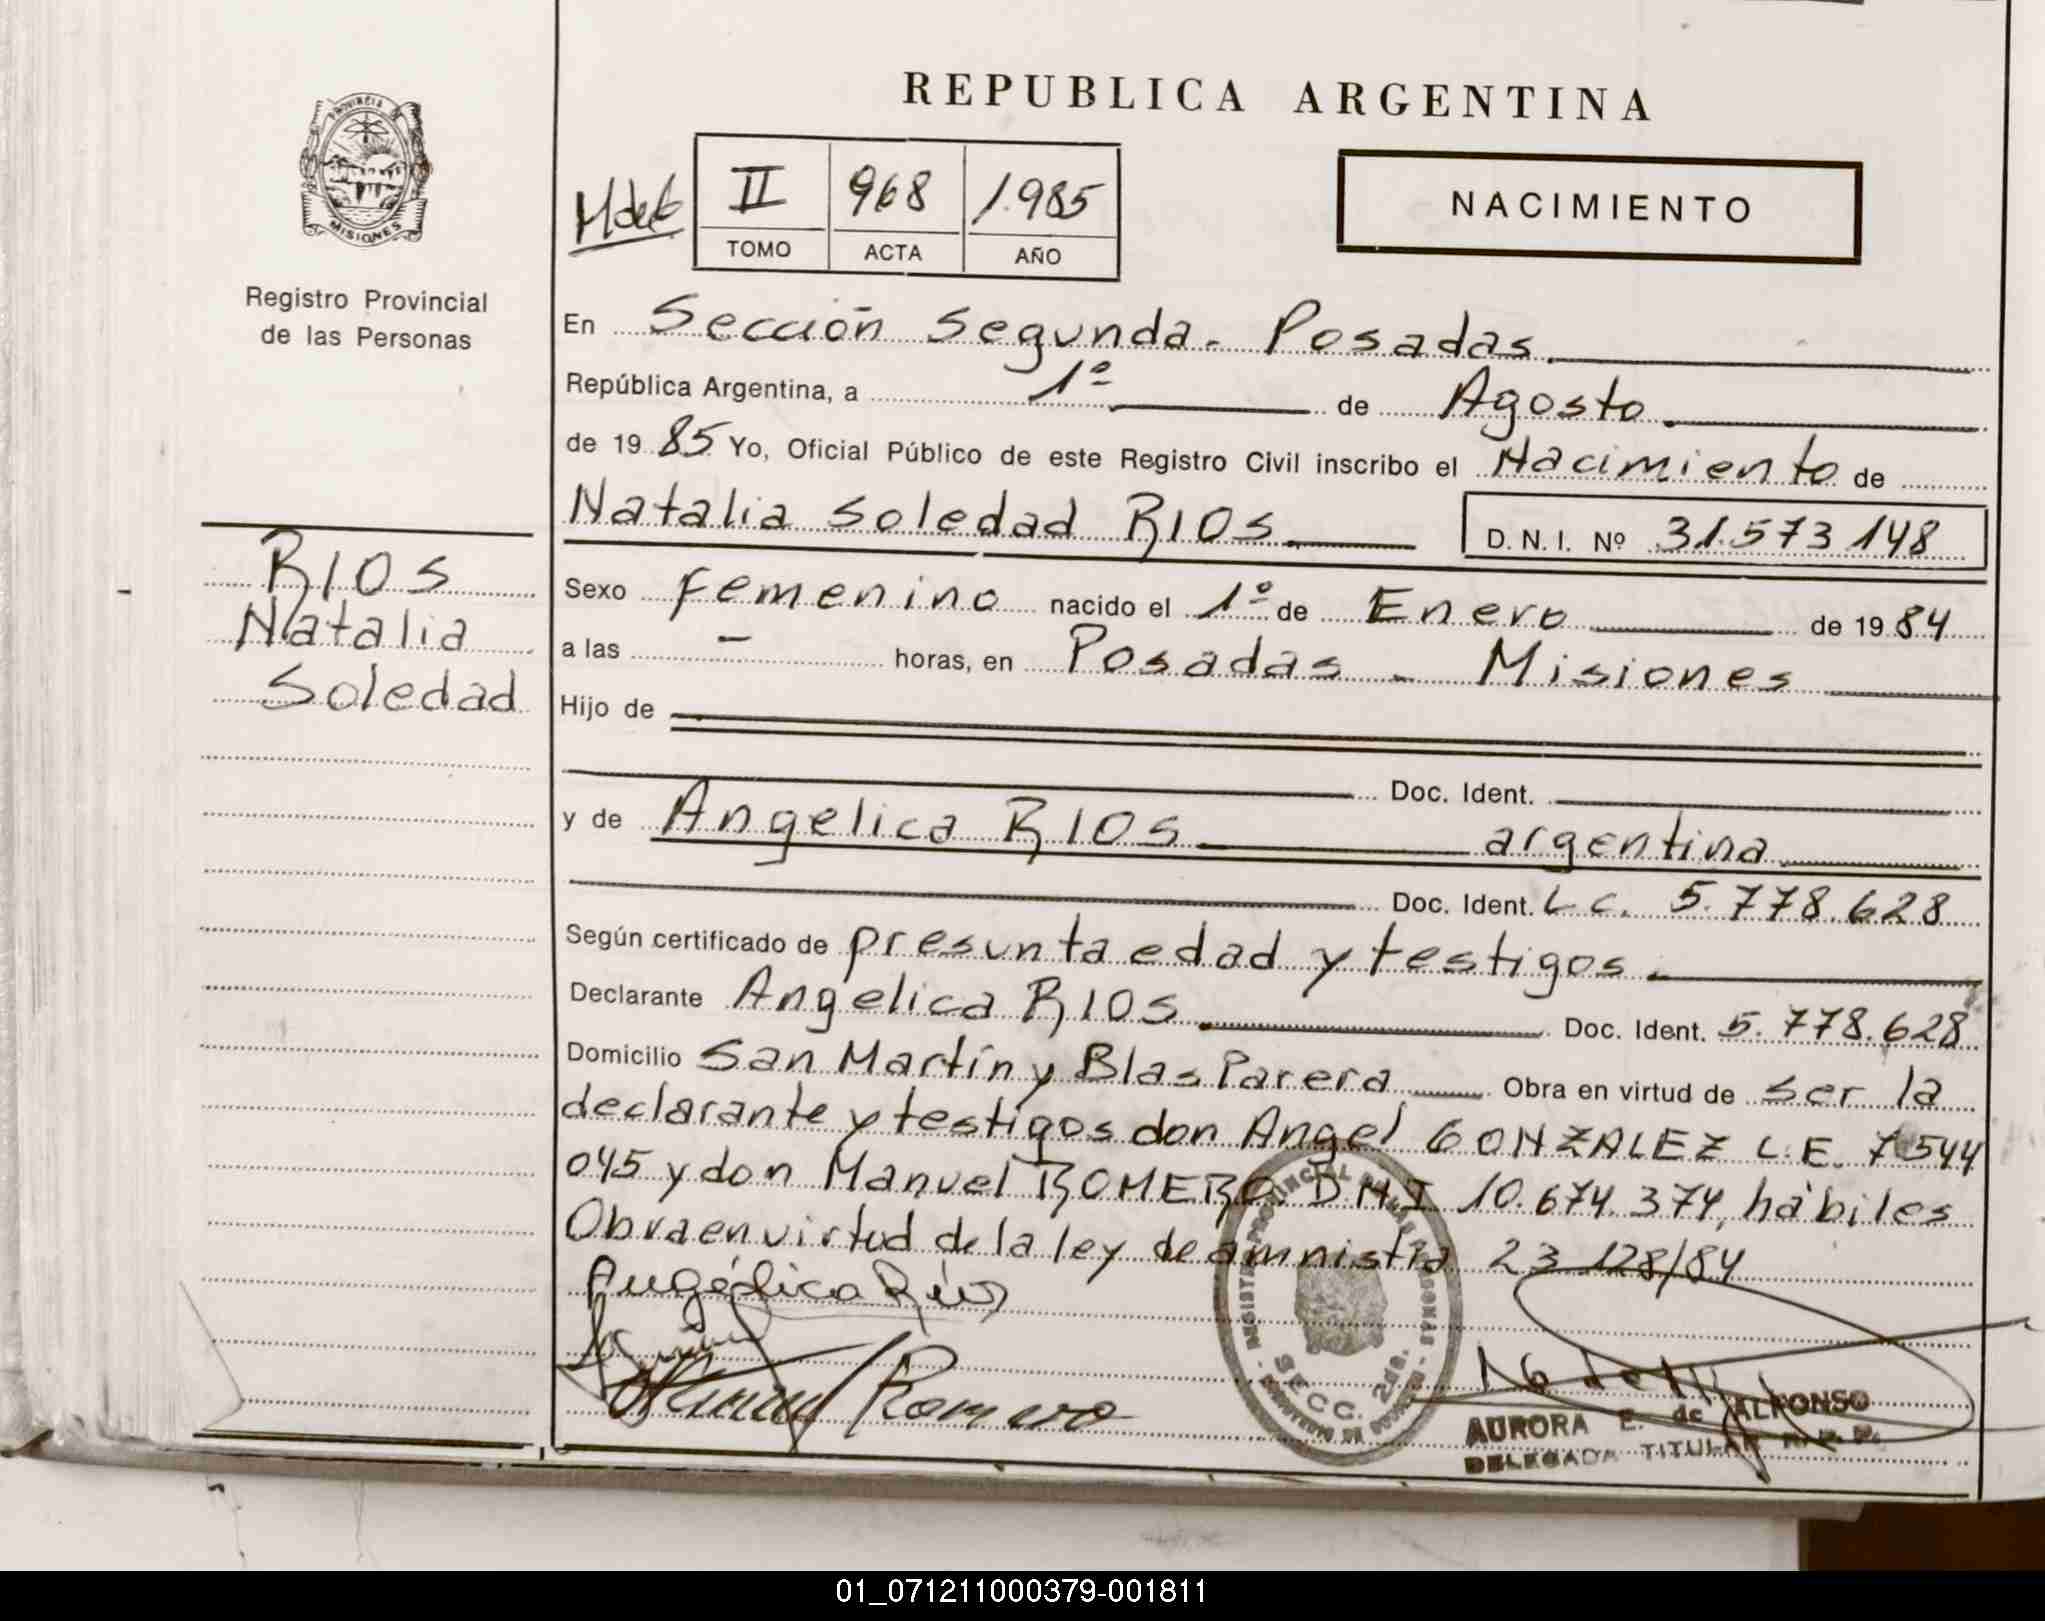 REPUBLICA ARGENTINA
PROVINCIA DE
MISIONES
Registro Provincial
de las Personas
II 968 1.985
TOMO ACTA AÑO
NACIMIENTO
En Sección Segunda - Posadas
República Argentina, a 1º de Agosto
de 1985 Yo, Oficial Público de este Registro Civil inscribo el Nacimiento de
Natalia Soledad RIOS D. N. I. Nº 31.573 148
RIOS
Natalia
Soledad
Sexo femenino nacido el 1º de Enero de 1984
a las - horas, en Posadas - Misiones
Hijo de
Doc. Ident.
y de Angelica RIOS argentina
Doc. Ident. L C. 5.778.628
Según certificado de presunta edad y testigos
Declarante Angelica RIOS Doc. Ident. 5.778.628
Domicilio San Martín y Blas Parera Obra en virtud de ser la
declarante y testigos don Angel GONZALEZ L.E. 7 544
045 y don Manuel ROMERO D.N.I 10.674.374, hábiles
Obra en virtud de la ley de amnistia 23 128/84
Angélica Ríos
Romero
SECC. 2da.
AURORA E. de ALFONSO
DELEGADA TITULAR R. P. P.
01_071211000379-001811